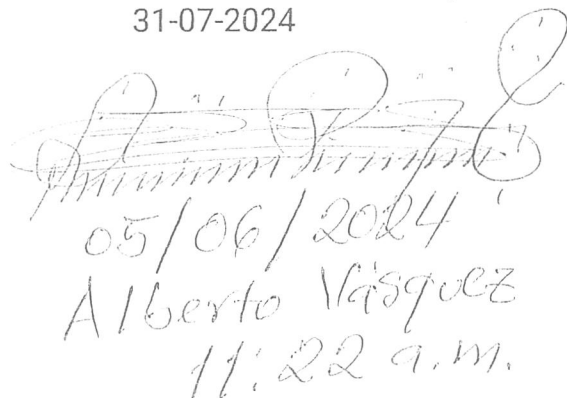 31-07-2024
05/06/2024
Alberto Vásquez
11:22 a.m.